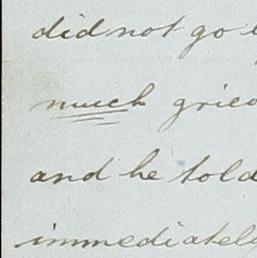 did not go
much
and he told
immediately